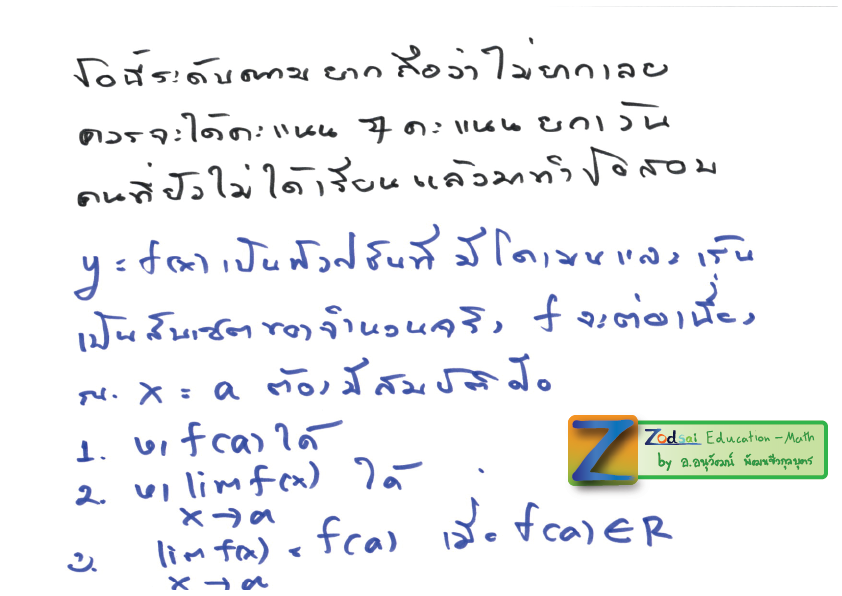 ข้อนี้ระดับความยาก ถือว่าไม่ยากเลย
ควรจะได้คะแนน 7 คะแนน ยกเว้น
คนที่ยังไม่ได้เรียน แล้วมาทำข้อสอบ
y = f(x) เป็นฟังก์ชันที่ มีโดเมนและเรนจ์
เป็นสับเซตของจำนวนจริง f จะต่อเนื่อง
ณ. x = a ต้องมีสมบัติคือ
1. หา f(a) ได้
2. หา lim f(x) ได้
x → a
3. lim f(x) = f(a) เมื่อ f(a) ∈ R
x → a
Z
Zodsai Education - Math
by อ.อนุวัฒน์ พัฒนชีวกุลบุตร